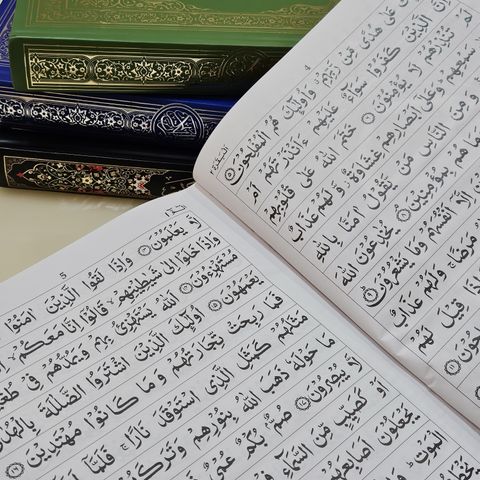 4
الْبَقَرَة ٢
عَلٰى هُدًى مِّنْ رَّبِّهِمْ وَاُولٰٓئِكَ هُمُ الْمُفْلِحُوْنَ ۝٥
الَّذِيْنَ كَفَرُوْا سَوَآءٌ عَلَيْهِمْ ءَاَنْذَرْتَهُمْ اَمْ
تُنْذِرْهُمْ لَا يُؤْمِنُوْنَ ۝٦ خَتَمَ اللّٰهُ عَلٰى قُلُوْبِهِمْ
سَمْعِهِمْ وَعَلٰٓى اَبْصَارِهِمْ غِشَاوَةٌ وَّلَهُمْ عَذَابٌ
وَمِنَ النَّاسِ مَنْ يَّقُوْلُ اٰمَنَّا بِاللّٰهِ
هُمْ بِمُؤْمِنِيْنَ ۝٨ يُخٰدِعُوْنَ اللّٰهَ
اِلَّآ اَنْفُسَهُمْ وَمَا يَشْعُرُوْنَ ۝٩
مَرَضًا وَلَهُمْ عَذَابٌ
قِيْلَ لَهُمْ
۝١١
5
لَّا يَعْلَمُوْنَ ۝١٣ وَاِذَا لَقُوا الَّذِيْنَ اٰمَنُوْا
وَاِذَا خَلَوْا اِلٰى شَيٰطِيْنِهِمْ قَالُوْٓا اِنَّا مَعَكُمْ
مُسْتَهْزِءُوْنَ ۝١٤ اَللّٰهُ يَسْتَهْزِئُ بِهِمْ وَيَمُدُّهُمْ فِيْ
يَعْمَهُوْنَ ۝١٥ اُولٰٓئِكَ الَّذِيْنَ اشْتَرَوُا الضَّلٰلَةَ
فَمَا رَبِحَتْ تِّجَارَتُهُمْ وَمَا كَانُوْا مُهْتَدِيْنَ ۝١٦
مَثَلُهُمْ كَمَثَلِ الَّذِى اسْتَوْقَدَ نَارًا فَلَمَّآ
مَا حَوْلَهٗ ذَهَبَ اللّٰهُ بِنُوْرِهِمْ وَتَرَكَهُمْ
لَّا يُبْصِرُوْنَ ۝١٧ صُمٌّۢ بُكْمٌ عُمْيٌ
اَوْ كَصَيِّبٍ مِّنَ السَّمَآءِ
يَجْعَلُوْنَ اَصَابِعَهُمْ
الْمَوْتِ